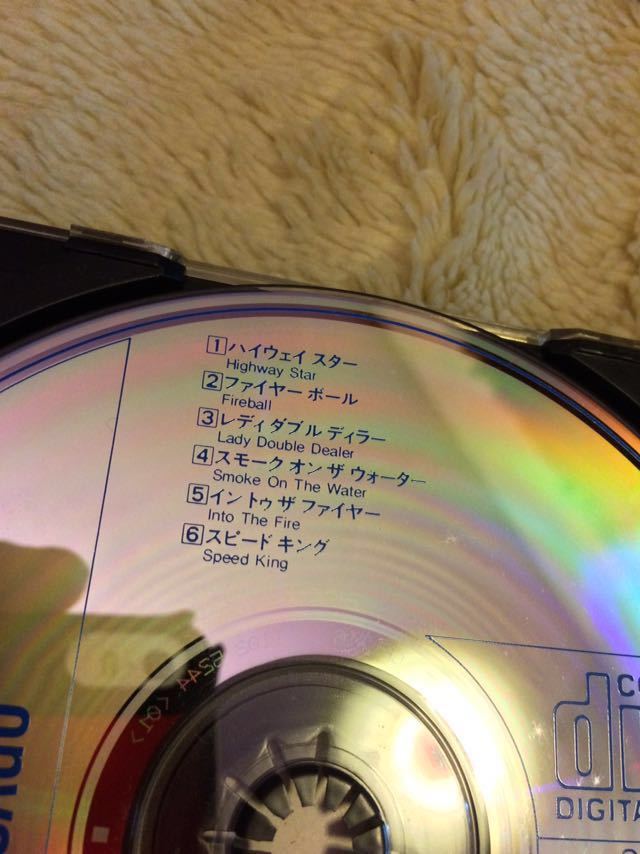 1 ハイウェイ スター
Highway Star
2 ファイヤー ボール
Fireball
3 レディ ダブル ディラー
Lady Double Dealer
4 スモーク オン ザ ウォーター
Smoke On The Water
5 イン トゥ ザ ファイヤー
Into The Fire
6 スピード キング
Speed King
DIGITA